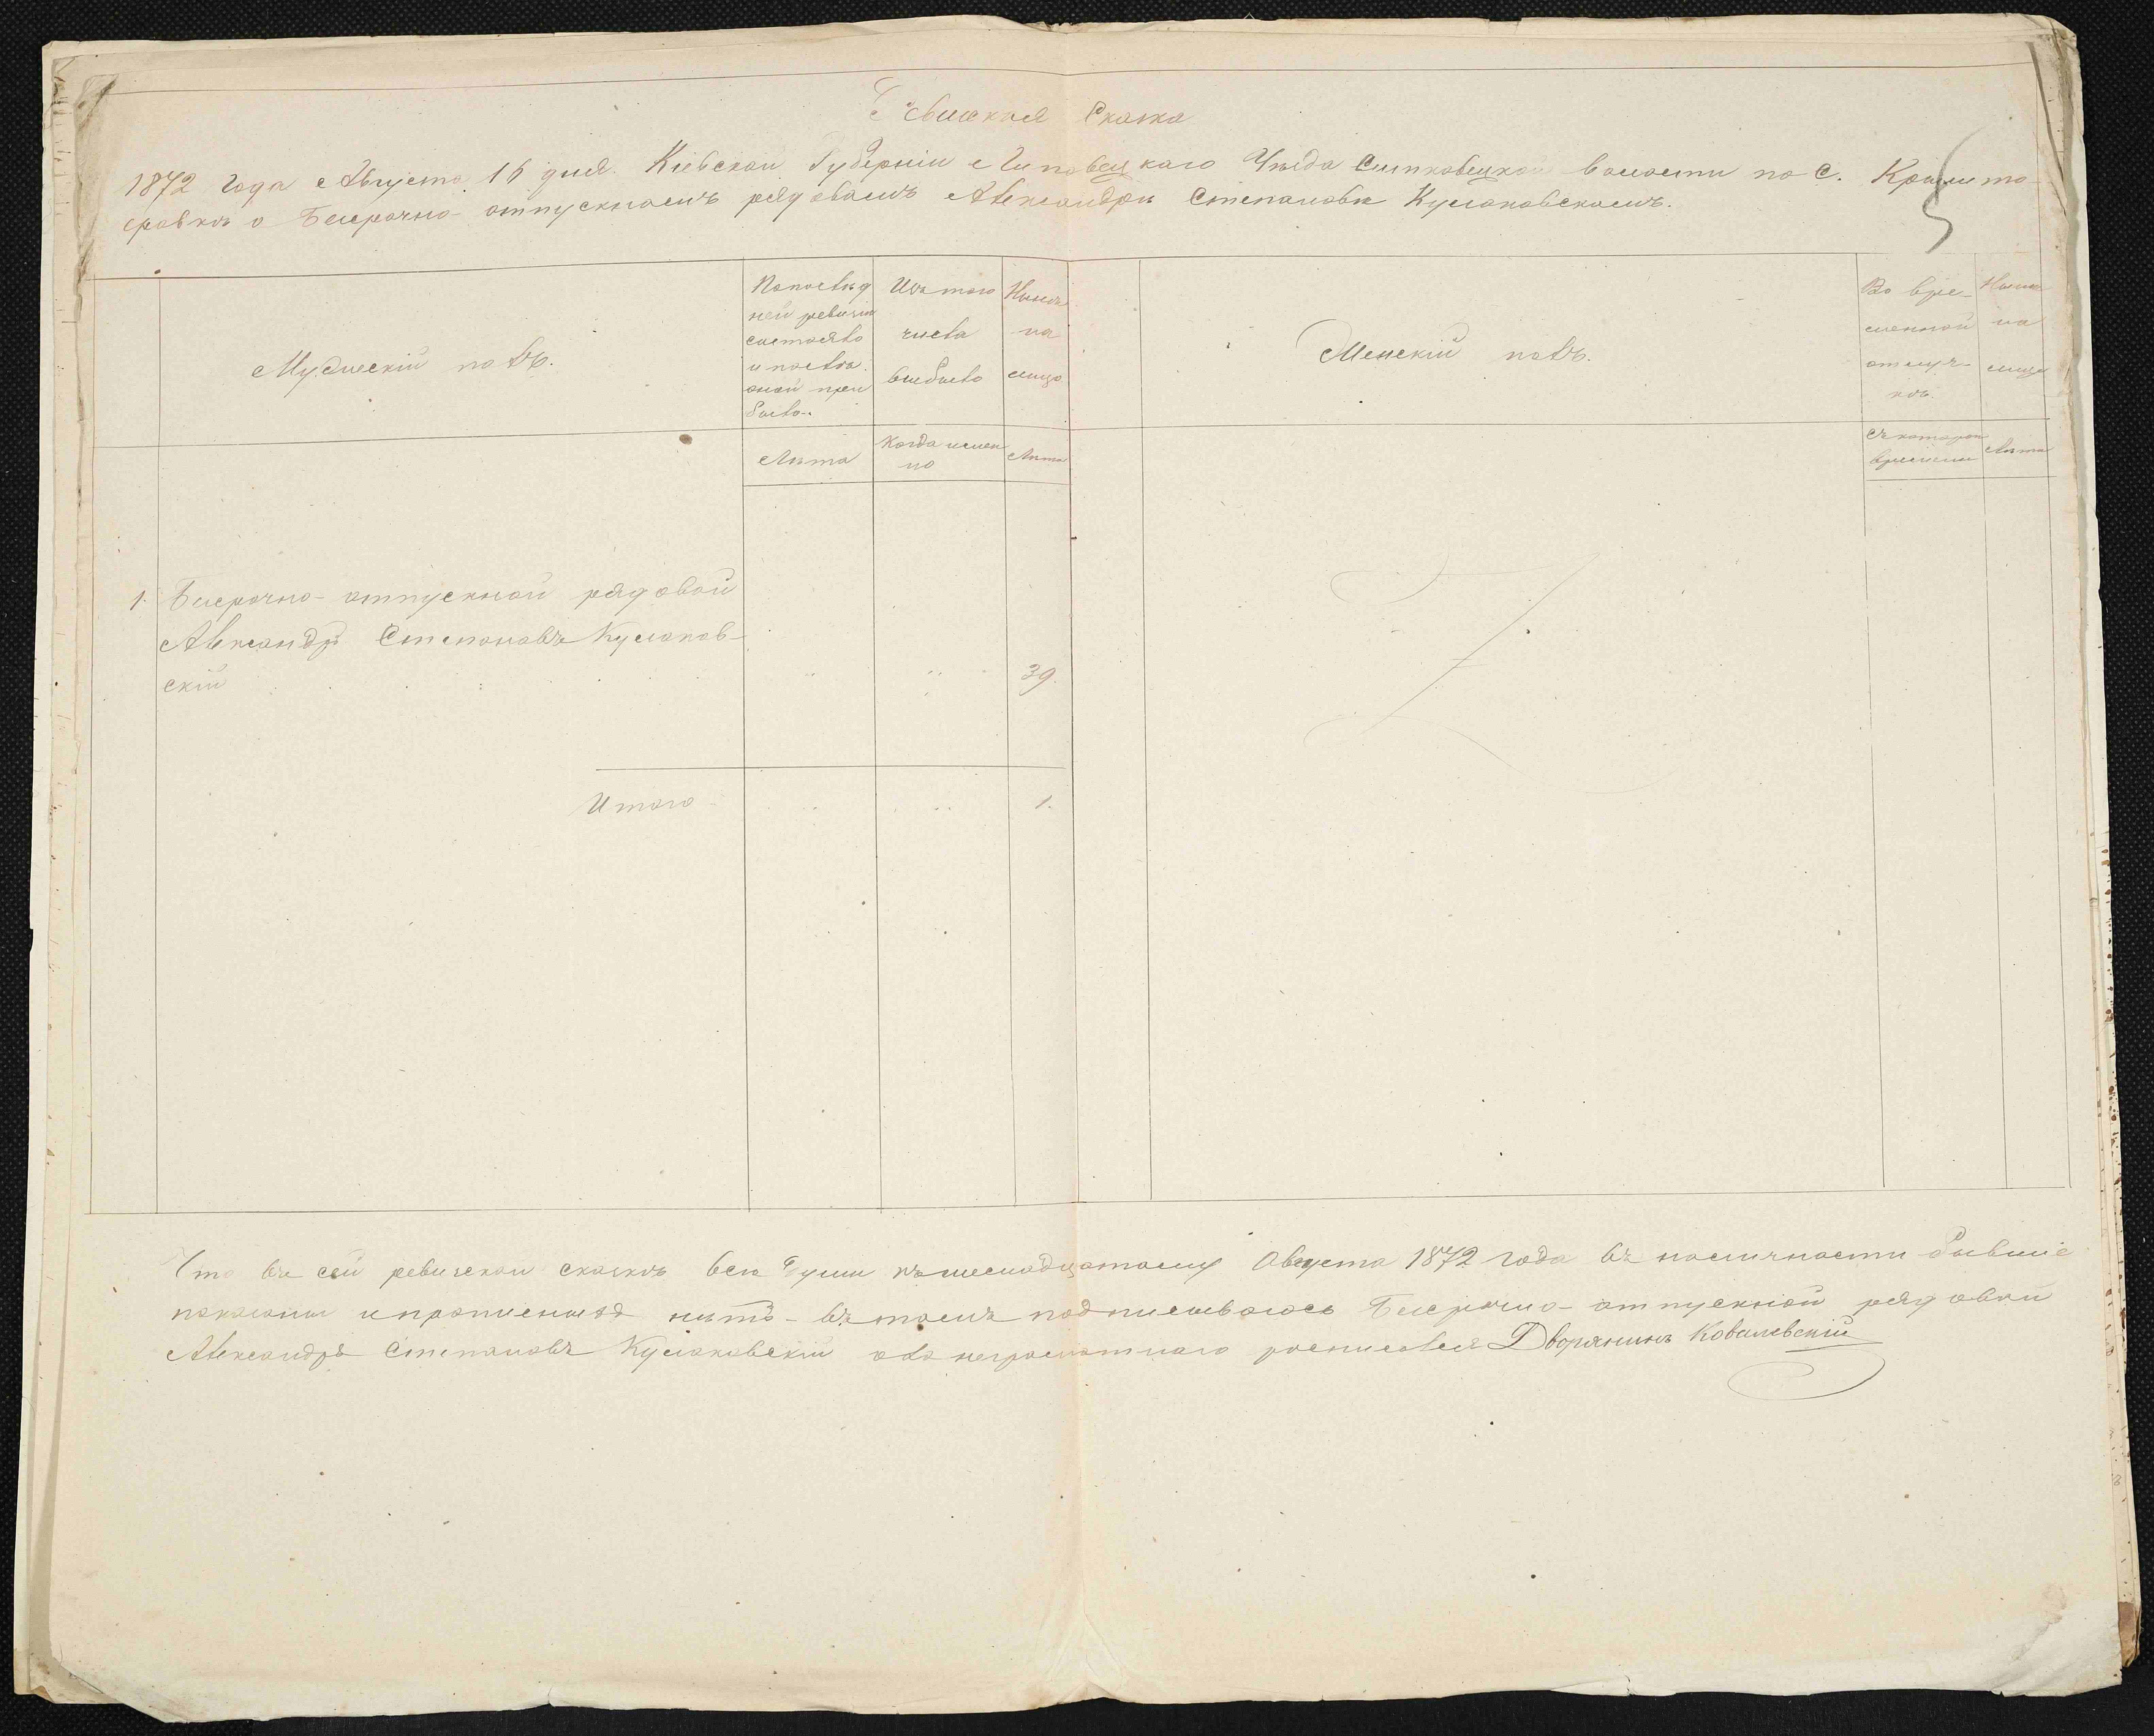 Ревизкая Сказка
1872 года Августа 16 дня. Кіевской Губерніи Липовецкаго Уѣзда Ситковецкой волости по с.
справкѣ о Безсрочно-отпускномъ рядовомъ Александрѣ Степановѣ
Мужескій полъ.
По послѣд
ней ревизіи
состояло
и послѣ
оной при
было.
Изъ того
числа
выбыло
Нынѣ
на
лицо
Женскій полъ.
Во вре-
менной
отлуч-
кѣ.
Нынѣ
на
лицо
Лѣта
Когда имен
но
Лѣта
съ которого
времени
Лѣта
1. Безсрочно-отпускной рядовой
Александръ Степановъ
скій 39.
Итого 1.
Что въ сей ревизской сказкѣ всѣ души къ шеснадцатому Августа 1872 года въ наличности бывшіе
показаны и прописныхъ нѣтъ - въ томъ подписываюсь Безсрочно-отпускной рядовой
Александръ Степановъ неграмотнаго росписался Дворянинъ Ковалевскій